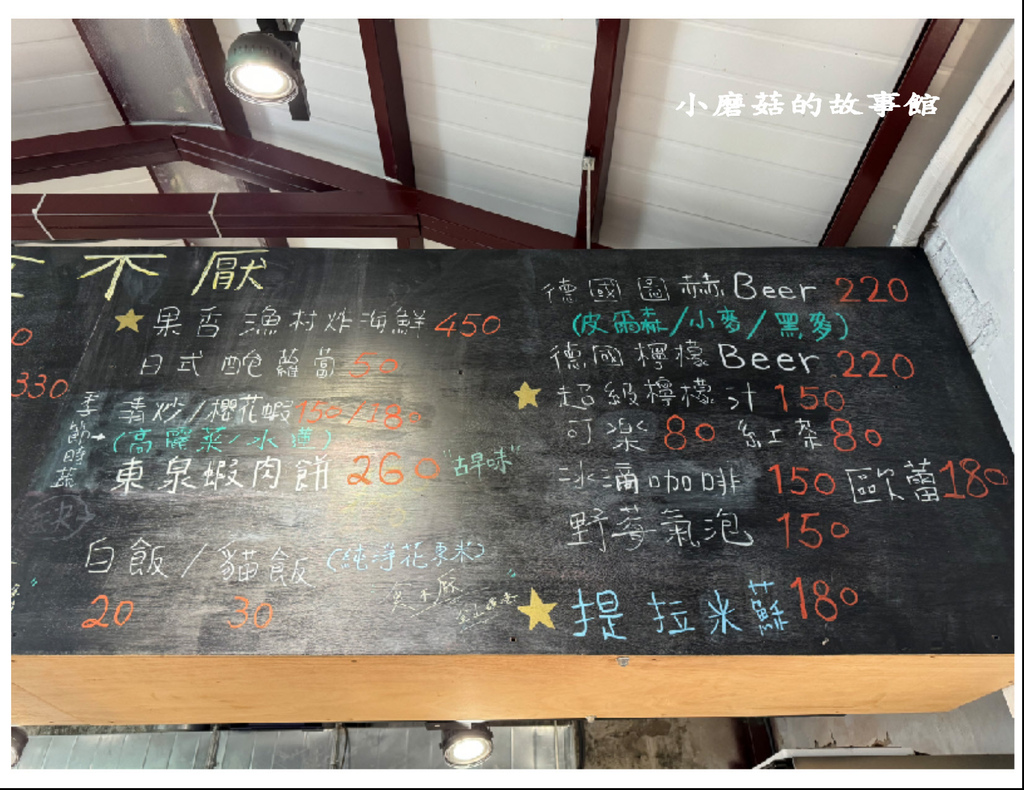 小磨菇的故事館
不厭
★果香漁村炸海鮮 450
日式醃蘿蔔 50
330
季節時蔬→
清炒/櫻花蝦 150/180
(高麗菜/水蓮)
東泉蝦肉餅 260 "古早味"
白飯/貓飯(純淨花東米)
20 30
德國圖赫Beer 220
(皮爾森/小麥/黑麥)
德國檸檬Beer 220
★超級檸檬汁 150
可樂 80 紅茶 80
冰滴咖啡 150 歐蕾 180
野莓氣泡 150
★提拉米蘇 180